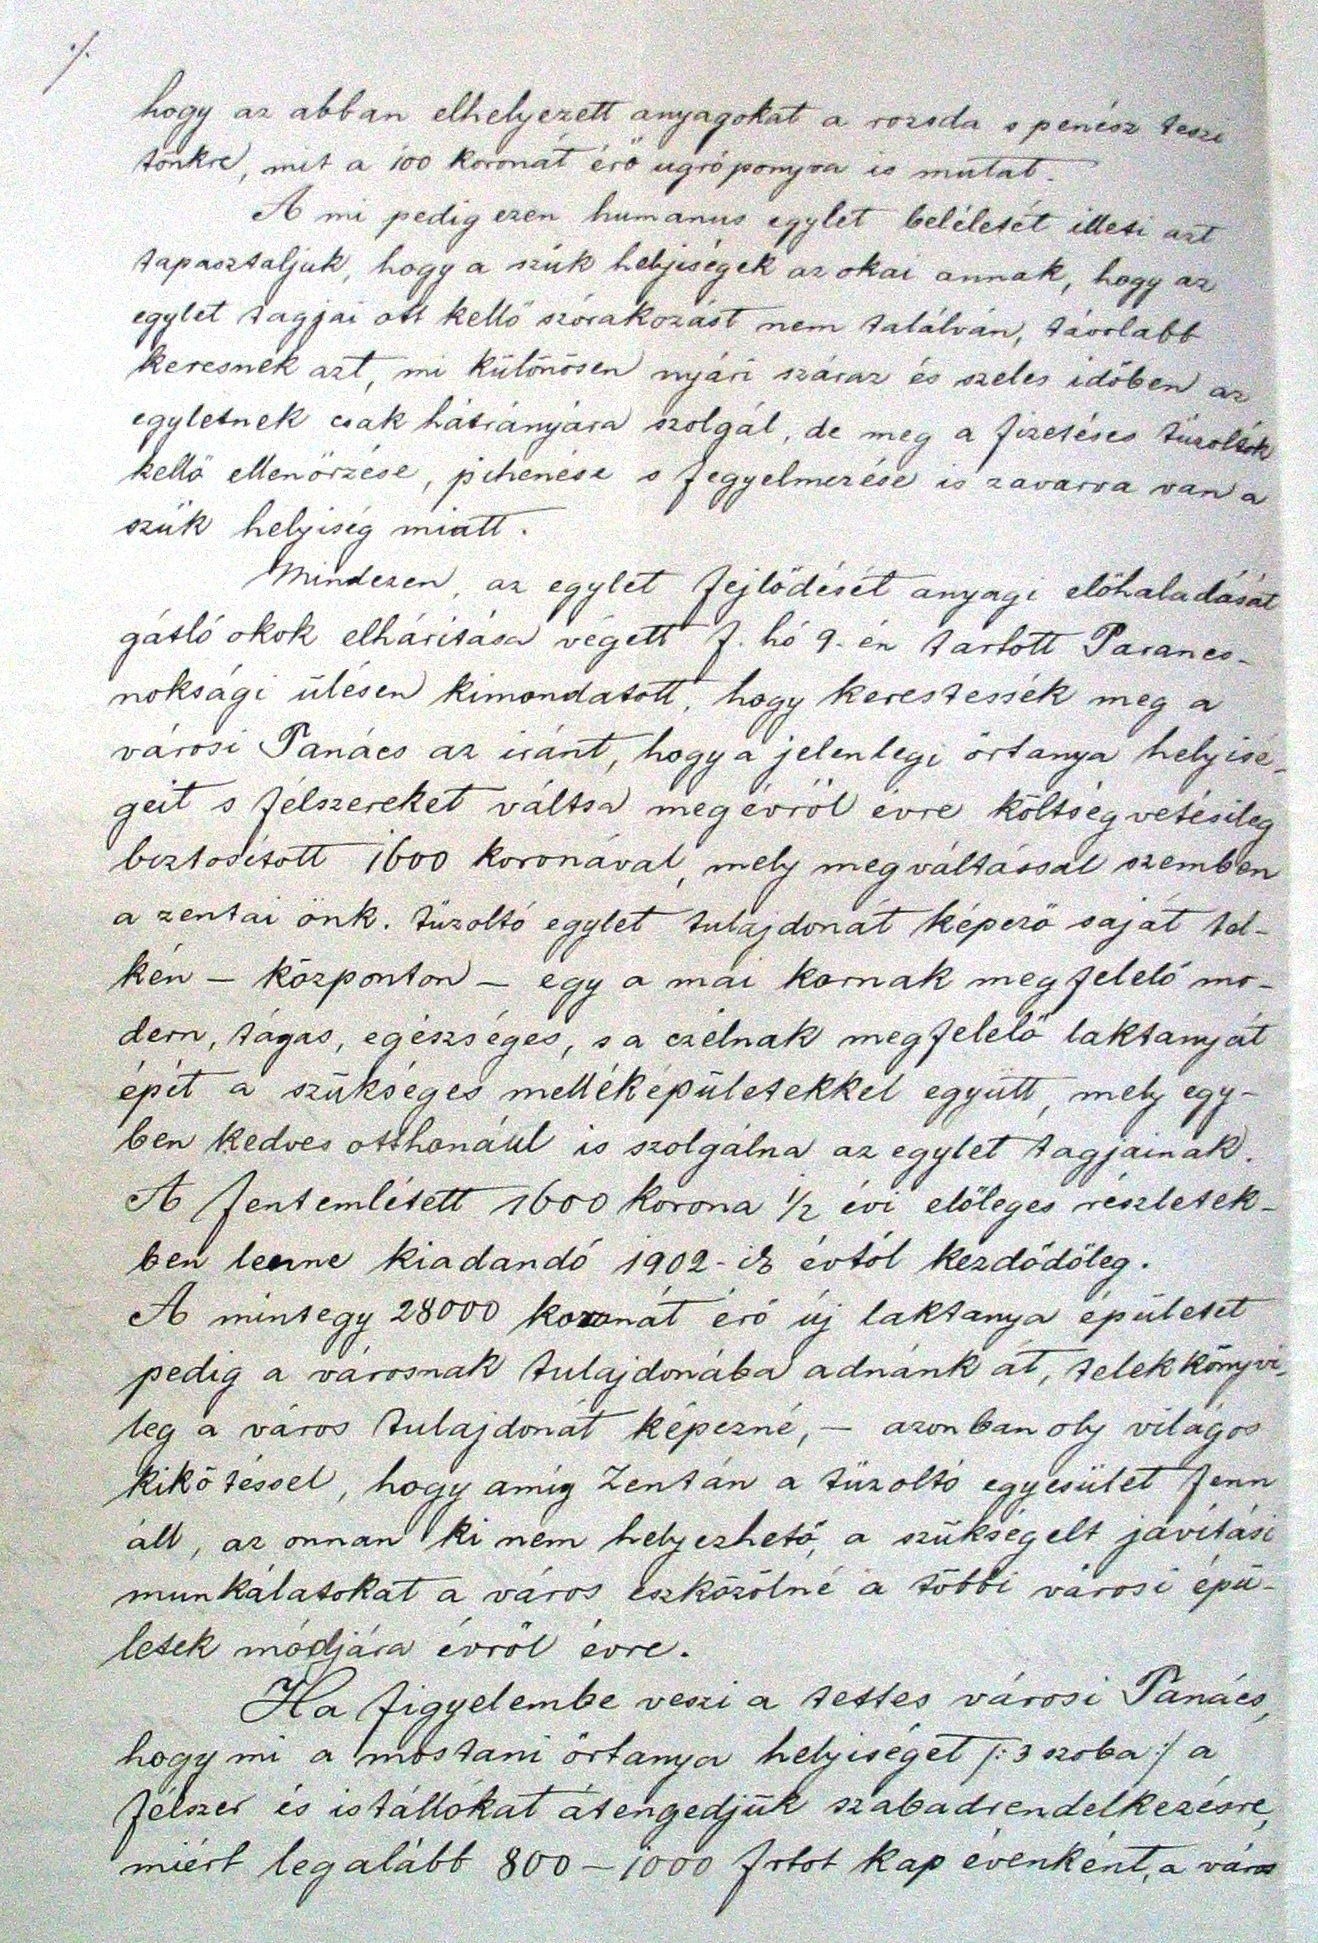 ./.
hogy az abban elhelyezett anyagokat a rozsda s penész teszi
tönkre, mit a 100 koronát érő ugróponyva is mutat.
A mi pedig ezen humanus egylet beléletét illeti azt
tapasztaljuk, hogy a szük helyiségek az okai annak, hogy az
egylet tagjai ott kellő szórakozást nem találván, távolabb
keresnek azt, mi különösen nyári száraz és szeles időben az
egyletnek csak hátrányára szolgál, de meg a fizetéses tüzoltók
kellő ellenőrzése, pihenése s fegyelmezése is zavarva van a
szük helyiség miatt.
Mindezen, az egylet fejlődését anyagi előhaladását
gátló okok elháritása végett f. hó 9.-én tartott Parancs-
noksági ülésen kimondatott, hogy kerestessék meg a
városi Tanács az iránt, hogy a jelenlegi őrtanya helyisé-
geit s félszereket váltsa meg évről évre költségvetésileg
biztositott 1600 koronával, mely megváltással szemben
a zentai önk. tüzoltó egylet tulajdonát képező saját tel-
kén – központon – egy a mai kornak megfelelő mo-
dern, tágas, egészséges, s a czélnak megfelelő laktanyát
épit a szükséges melléképületekkel együtt, mely egy-
ben kedves otthonául is szolgálna az egylet tagjainak.
A fentemlitett 1600 korona 1/2 évi előleges részletek-
ben lenne kiadandó 1902-ik évtól kezdődőleg.
A mintegy 28000 koronát érő új laktanya épületet
pedig a városnak tulajdonába adnánk át, telekkönyvi-
leg a város tulajdonát képezné, – azonban oly világos
kikötéssel, hogy amig Zentán a tüzoltó egyesület fenn
áll, az onnan ki nem helyezhető, a szükségelt javitási
munkálatokat a város eszközölné a többi városi épü-
letek módjára évről évre.
Ha figyelembe veszi a tettes városi Tanács,
hogy mi a mostani őrtanya helyiséget /: 3 szoba :/ a
félszer és istállókat átengedjük szabadrendelkezésre,
miért legalább 800 – 1000 frtot kap évenként, a város